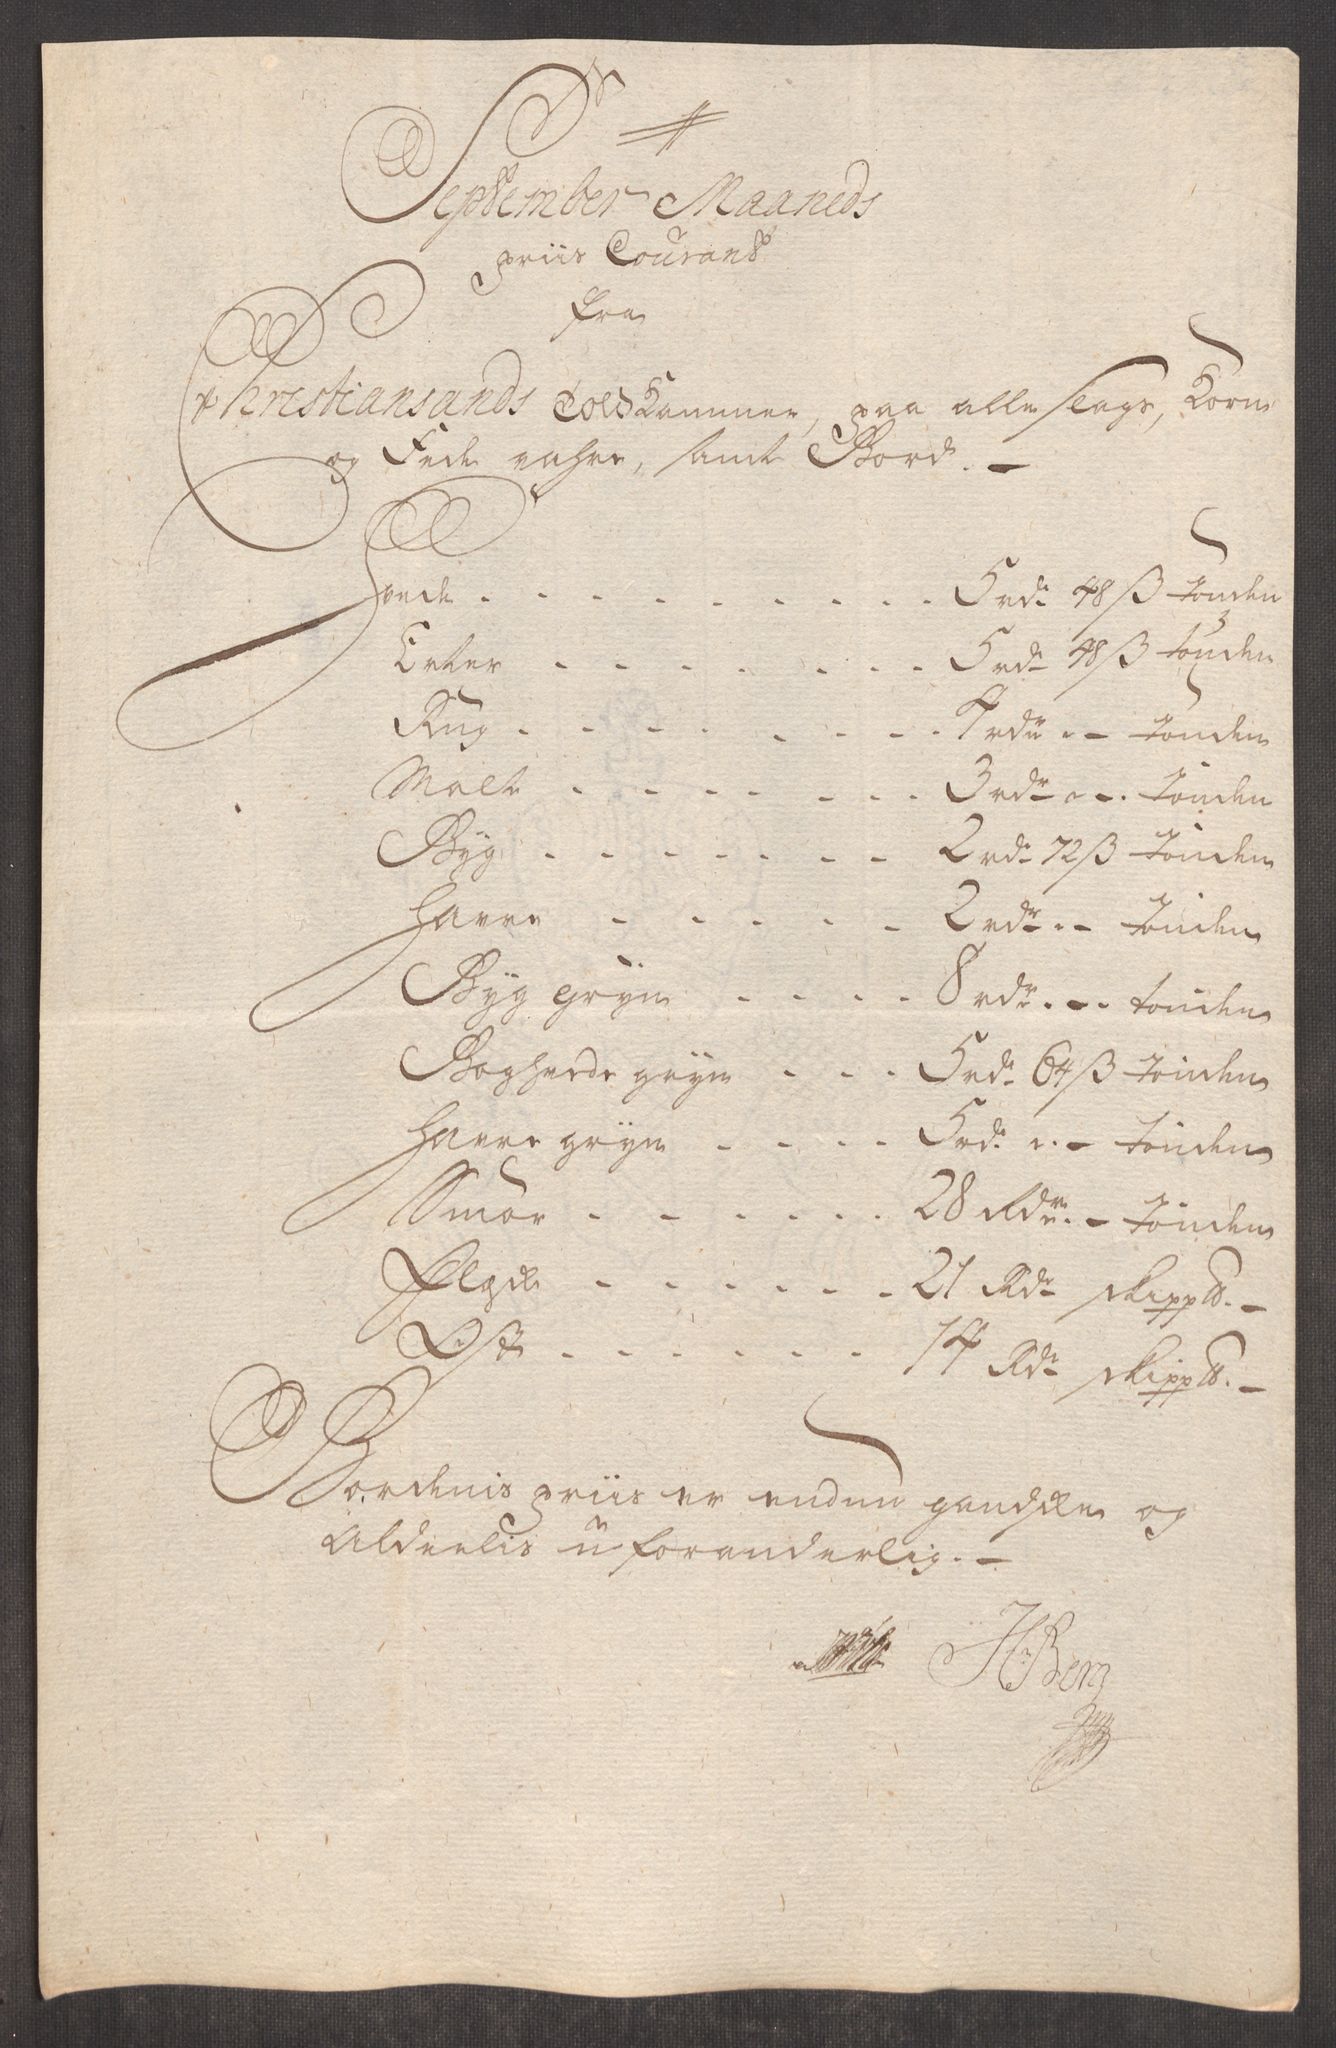 September Maaneds
priis Courant
fra
Christiansands Told Kammer, paa alle slags, Korn
og Fede vahre, samt Bord. -
Hvede . . . . . . . . . . 5 rdr 48 ß tönden
Erter . . . . . . . . 5 rdr 48 ß tönden
Rug . . . . . . . . . 4 rdr . - tönden
Malt . . . . . . . . 3 rdr . - . tönden
Byg . . . . . . . 2 rdr 72 ß tönden
Havre . . . . . 2 rdr . - tönden
Byg gryn . . . . 8 rdr . - . tönden
Boghvede gryn . . . 5 rdr 64 ß tönden
Havre gryn . . . . 5 rdr . - tönden
Smör . . . . . . 28 Rdr . - tönden
Flesk . . . . . . 21 Rdr skipp℔. -
Ost . . . . . . 14 Rdr skipp℔. -
Bordenis priis er endnu gandske og
Aldeelis uforanderlig. -
H Berg